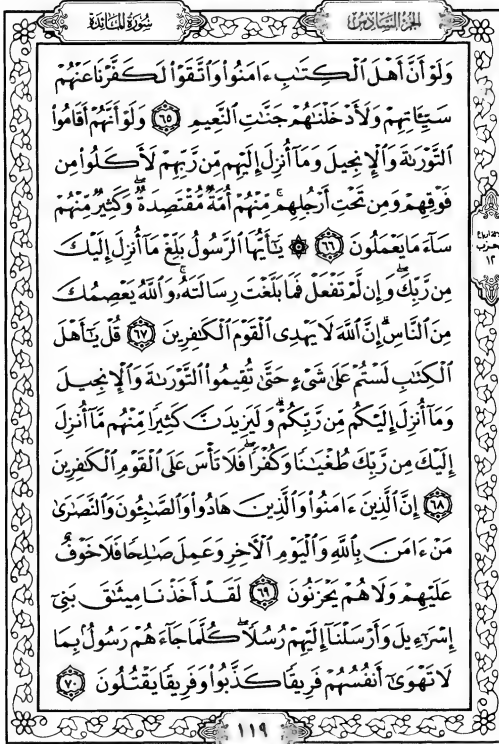 الجزء السادس
سورة المائدة
وَلَوْ أَنَّ أَهْلَ ٱلْكِتَٰبِ ءَامَنُوا۟ وَٱتَّقَوْا۟ لَكَفَّرْنَا عَنْهُمْ
سَيِّـَٔاتِهِمْ وَلَأَدْخَلْنَٰهُمْ جَنَّٰتِ ٱلنَّعِيمِ ٦٥ وَلَوْ أَنَّهُمْ أَقَامُوا۟
ٱلتَّوْرَىٰةَ وَٱلْإِنجِيلَ وَمَآ أُنزِلَ إِلَيْهِم مِّن رَّبِّهِمْ لَأَكَلُوا۟ مِن
فَوْقِهِمْ وَمِن تَحْتِ أَرْجُلِهِم ۚ مِّنْهُمْ أُمَّةٌ مُّقْتَصِدَةٌ ۖ وَكَثِيرٌ مِّنْهُمْ
سَآءَ مَا يَعْمَلُونَ ٦٦ ۞ يَٰٓأَيُّهَا ٱلرَّسُولُ بَلِّغْ مَآ أُنزِلَ إِلَيْكَ
مِن رَّبِّكَ ۖ وَإِن لَّمْ تَفْعَلْ فَمَا بَلَّغْتَ رِسَالَتَهُۥ ۚ وَٱللَّهُ يَعْصِمُكَ
مِنَ ٱلنَّاسِ ۗ إِنَّ ٱللَّهَ لَا يَهْدِى ٱلْقَوْمَ ٱلْكَٰفِرِينَ ٦٧ قُلْ يَٰٓأَهْلَ
ٱلْكِتَٰبِ لَسْتُمْ عَلَىٰ شَىْءٍ حَتَّىٰ تُقِيمُوا۟ ٱلتَّوْرَىٰةَ وَٱلْإِنجِيلَ
وَمَآ أُنزِلَ إِلَيْكُم مِّن رَّبِّكُمْ ۗ وَلَيَزِيدَنَّ كَثِيرًا مِّنْهُم مَّآ أُنزِلَ
إِلَيْكَ مِن رَّبِّكَ طُغْيَٰنًا وَكُفْرًا ۖ فَلَا تَأْسَ عَلَى ٱلْقَوْمِ ٱلْكَٰفِرِينَ
٦٨ إِنَّ ٱلَّذِينَ ءَامَنُوا۟ وَٱلَّذِينَ هَادُوا۟ وَٱلصَّٰبِـُٔونَ وَٱلنَّصَٰرَىٰ
مَنْ ءَامَنَ بِٱللَّهِ وَٱلْيَوْمِ ٱلْءَاخِرِ وَعَمِلَ صَٰلِحًا فَلَا خَوْفٌ
عَلَيْهِمْ وَلَا هُمْ يَحْزَنُونَ ٦٩ لَقَدْ أَخَذْنَا مِيثَٰقَ بَنِىٓ
إِسْرَٰٓءِيلَ وَأَرْسَلْنَآ إِلَيْهِمْ رُسُلًا ۖ كُلَّمَا جَآءَهُمْ رَسُولٌۢ بِمَا
لَا تَهْوَىٰٓ أَنفُسُهُمْ فَرِيقًا كَذَّبُوا۟ وَفَرِيقًا يَقْتُلُونَ ٧٠
١٢
١١٩